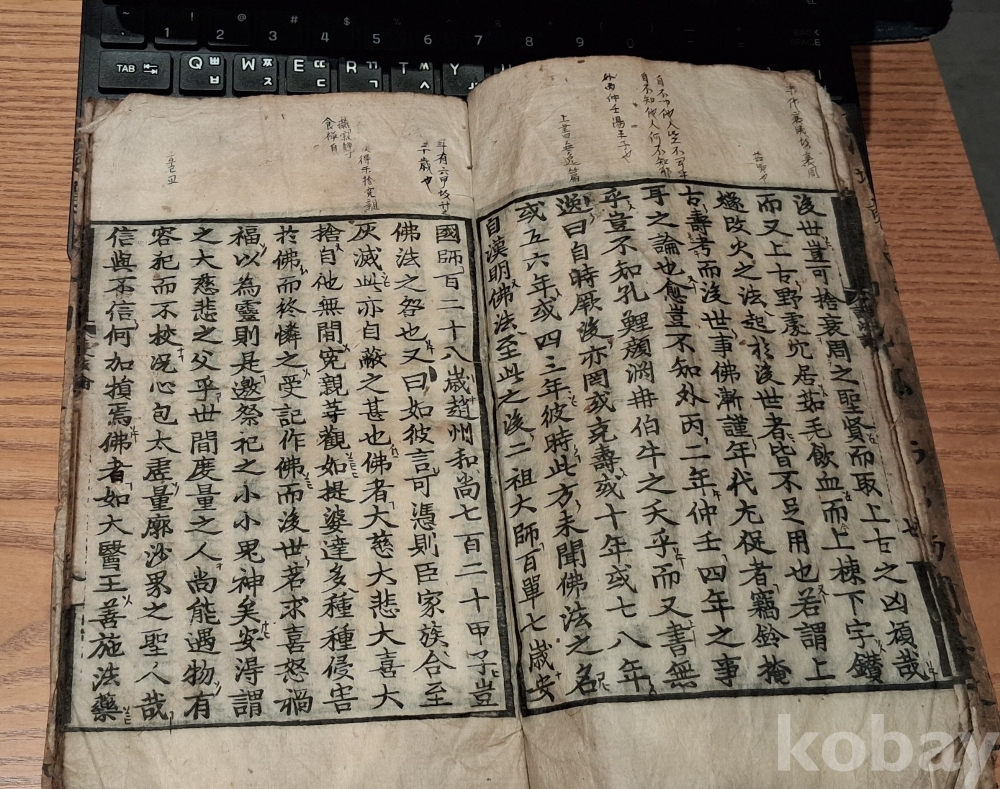 後世豈可捨衰周之聖賢而取上古之凶頑哉
而又上古野處穴居茹毛飲血而上棟下宇鑽
燧改火之法起於後世者皆不足用也若謂上
古壽考而後世事佛漸謹年代尤促者竊鈴掩
耳之論也愈豈不知外丙二年仲壬四年之事
乎豈不知孔鯉顔淵冉伯牛之夭乎而又書無
逸曰自時厥後亦罔或克壽或十年或七八年
或五六年或四三年彼時此方未聞佛法之名
自漢明佛法至此之後二祖大師百單七歲安
國師百二十八歲趙州和尚七百二十甲子豈
佛法之咎也又曰如彼言可憑則臣家族合至
灰滅此亦自蔽之甚也佛者大慈大悲大喜大
捨自他無間冤親等觀如提婆達多種種侵害
於佛而終憐之受記作佛而後世若求喜怒禍
福以為靈則是邀祭祀之小小鬼神矣安得謂
之大慈悲之父乎世間度量之人尚能遇物有
容犯而不校況心包太虛量廓沙界之聖人哉
信與不信何加損焉佛者如大醫王善施法藥
上書無逸篇
TAB
Q ㅃ ㅂ
W ㅉ ㅈ
E ㄸ ㄷ
R ㄲ
T
Y
kobay